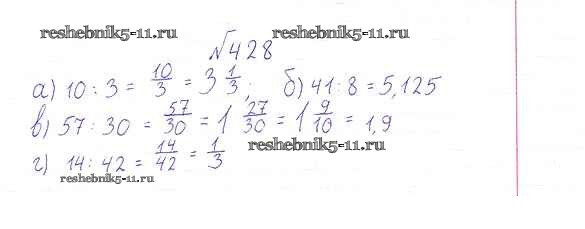 reshebnik5-11.ru reshebnik5-11.ru
№428
а) 10 : 3 = 10/3 = 3 1/3; б) 41 : 8 = 5,125
в) 57 : 30 = 57/30 = 1 27/30 = 1 9/10 = 1,9
г) 14 : 42 = 14/42 = 1/3 reshebnik5-11.ru
reshebnik5-11.ru